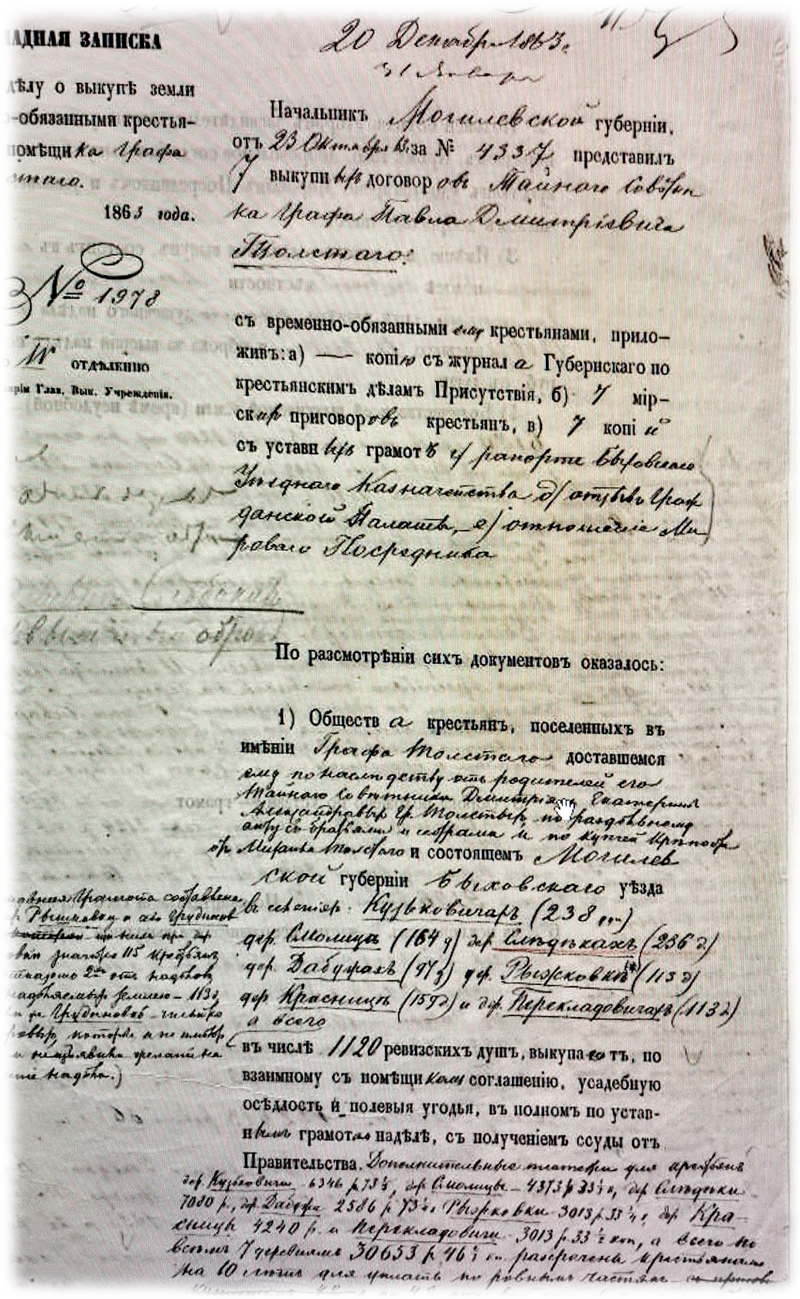 АДНАЯ ЗАПИСКА
дѣлу о выкупѣ земли
-обязанными крестья-
помѣщика Графа
стаго.
1863 года.
№ 1978
отдѣленію
Глав. Вык. Учрежденія.
20 Декабря 1863.
31 Января
Начальникъ Могилевской губерніи,
отъ 23 Октября за № 4337 представилъ
7 выкупныхъ договоровъ Тайнаго Совѣтни
ка Графа Павла Дмитріевича
Толстаго:
съ временно-обязанными ему крестьянами, прило-
живъ: а) — копію съ журнала Губернскаго по
крестьянскимъ дѣламъ Присутствія, б) 7 мір-
скихъ приговоровъ крестьянъ, в) 7 копій
съ уставныхъ грамотъ г) рапортъ Быховскаго
Уѣзднаго Казначейства д) отзывъ Граж
данской Палаты, е) отношеніе Ми-
роваго Посредника
По разсмотрѣніи сихъ документовъ оказалось:
1) Общества крестьянъ, поселенныхъ въ
имѣніи Графа Толстаго доставшемся
ему по наслѣдству отъ родителей его
Тайнаго Совѣтника Дмитрія и Екатерины
Александровны Гр. Толстыхъ, по раздѣльному
акту съ братьями и сестрами и по купчей крѣпости
Михаила Толстаго и состоящемъ Могилев
ской губерніи Быховскаго уѣзда
въ Кузьковичахъ (238
дер. Смолица (164 д) дер. Слѣдькахъ (236 д)
дер. Дабужахъ (97 д) дер. Рыжковкѣ (*) (113 д)
дер. Красница (159 д) и дер. Перекладовичахъ (113 д)
а всего
въ числѣ 1120 ревизскихъ душъ, выкупаютъ, по
взаимному съ помѣщикомъ соглашенію, усадебную
осѣдлость и полевыя угодья, въ полномъ по устав-
нымъ грамотамъ надѣлѣ, съ полученіемъ ссуды отъ
Правительства. Дополнительные платежи для крестьянъ
дер. Кузьковичи 6346 р 73½, дер. Смолицы 4373 р 33½ к, дер. Слѣдьки
7080 р., дер. Дабужа 2586 р 73½ Рыжковки 3013 р 33½, дер. Кра-
сницы 4240 р. и Перекладовичи 3013 р 33½ коп, а всего по
всѣмъ 7 деревнямъ 30653 р 46½ к. разсрочены крестьянамъ
на 10 лѣтъ для уплаты по ровнымъ частямъ
грамота составлена
Рыжковку и Грудиновъ
значатся 115 крестьянъ
отъ надѣловъ
землею — 113 д
Грудиновъ
которые и не
на
надѣла.)